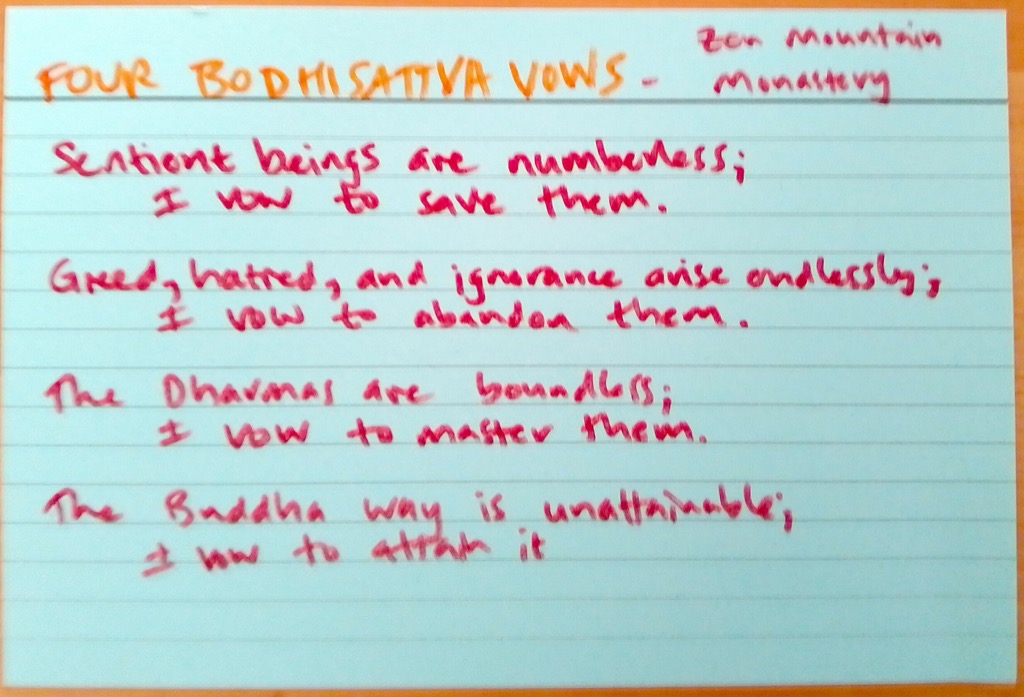 FOUR BODHISATTVA VOWS - Zen Mountain
Monastery
Sentient beings are numberless;
I vow to save them.
Greed, hatred, and ignorance arise endlessly;
I vow to abandon them.
The Dharmas are boundless;
I vow to master them.
The Buddha way is unattainable;
I vow to attain it